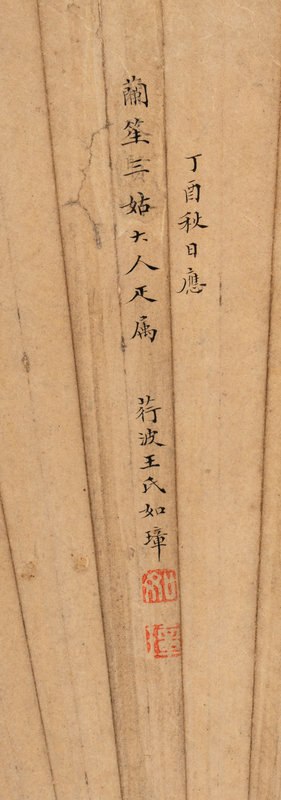 丁酉秋日應
蘭笙三姑大人疋属
荇波王氏如璋